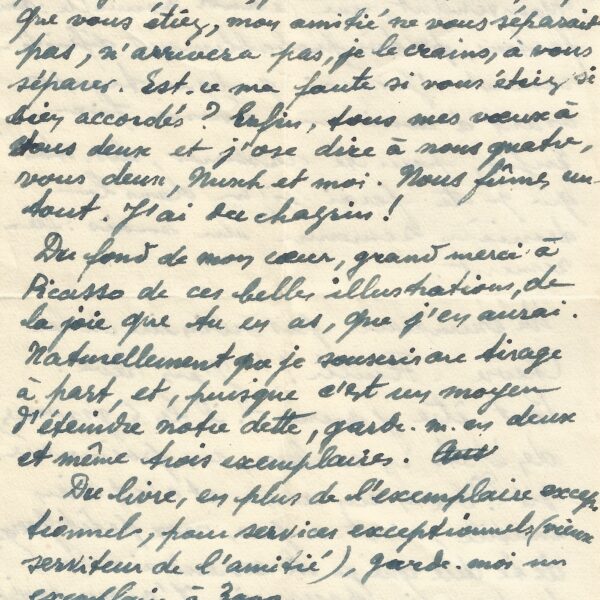 que vous étiez, mon amitié ne vous séparait
pas, n'arrivera pas, je le crains, à vous
séparer. Est-ce ma faute si vous étiez si
bien accordés? Enfin, tous mes vœux à
tous deux et j'ose dire à nous quatre,
vous deux, Nusch et moi. Nous fûmes un
tout. J'ai du chagrin!
Du fond de mon cœur, grand merci à
Picasso de ces belles illustrations, de
la joie que tu en as, que j'en aurai.
Naturellement que je souscris au tirage
à part, et, puisque c'est un moyen
d'éteindre notre dette, garde-m'en deux
et même trois exemplaires.
Du livre, en plus de l'exemplaire excep-
tionnel, pour services exceptionnels (vieux
serviteur de l'amitié), garde-moi un
exemplaire à